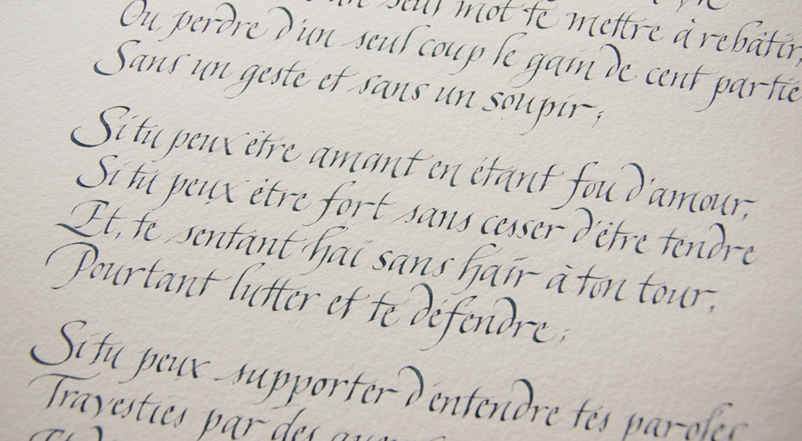 un seul mot te mettre à rebâtir,
Ou perdre d'un seul coup le gain de cent partie
Sans un geste et sans un soupir ;
Si tu peux être amant en étant fou d'amour,
Si tu peux être fort sans cesser d'être tendre
Et, te sentant haï sans haïr à ton tour,
Pourtant lutter et te défendre ;
Si tu peux supporter d'entendre tes paroles
Travesties par des